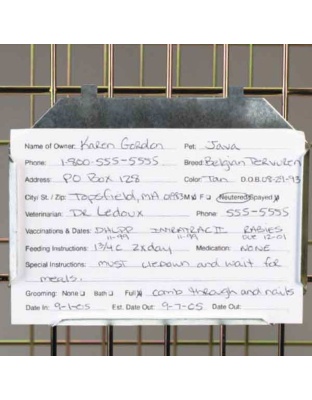 Name of Owner: Karen Gordon Pet: Java
Phone: 1-800-555-5555 Breed: Belgian Tervuren
Address: PO Box 128 Color: Tan D.O.B. 08-29-93
City/ St. / Zip: Topsfield, MA 01983 M F Neutered/Spayed
Veterinarian: DR Ledoux Phone: 555-5555
Vaccinations & Dates: DHLPP IMRATRAC II RABIES
11-99 11-99 DUE 12-01
Feeding Instructions: 1 3/4 C 2x day Medication: NONE
Special Instructions: MUST liedown and wait for
meals.
Grooming: None Bath Full comb through and nails
Date In: 9-1-05 Est. Date Out: 9-7-05 Date Out: